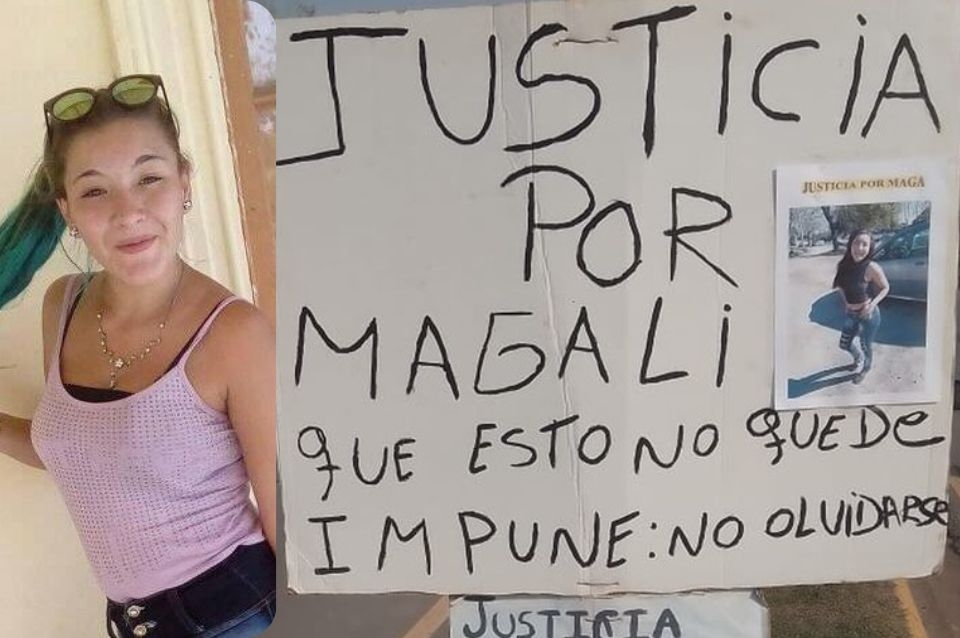 JUSTICIA
POR
JUSTICIA POR MAGA
MAGALI
QUE ESTO NO QUEDE
IMPUNE: NO OLVIDARSE
JUSTICIA